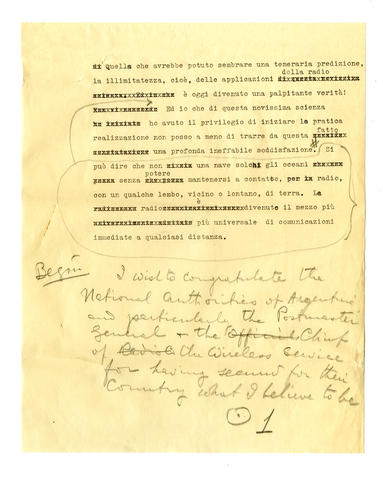 di quella che avrebbe potuto sembrare una temeraria predizione,
della radio
la illimitatezza, cioè, delle applicazioni
è oggi divenuto una palpitante verità!
Ed io che di questa novissima scienza
ho avuto il privilegio di iniziare la pratica
fatto
realizzazione non posso a meno di trarre da questa
una profonda ineffabile soddisfazione. Si
può dire che non una nave solchi gli oceani
potere
senza mantenersi a contatto, per radio,
con un qualche lembo, vicino o lontano, di terra. La
è
radio divenuto il mezzo più
più universale di comunicazioni
immediate a qualsiasi distanza.
Begin
I wish to congratulate the
National Authorities of Argentine
and particularly the Postmaster
General & the Official Chief
of the Wireless Service
for having secured for their
Country what I believe to be
1